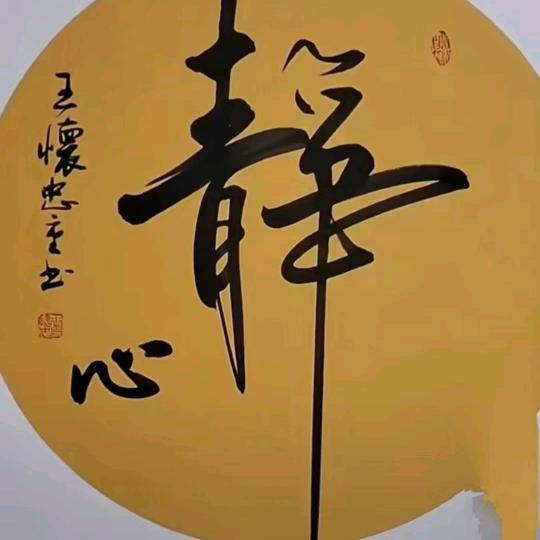 靜
心
王懷忠書